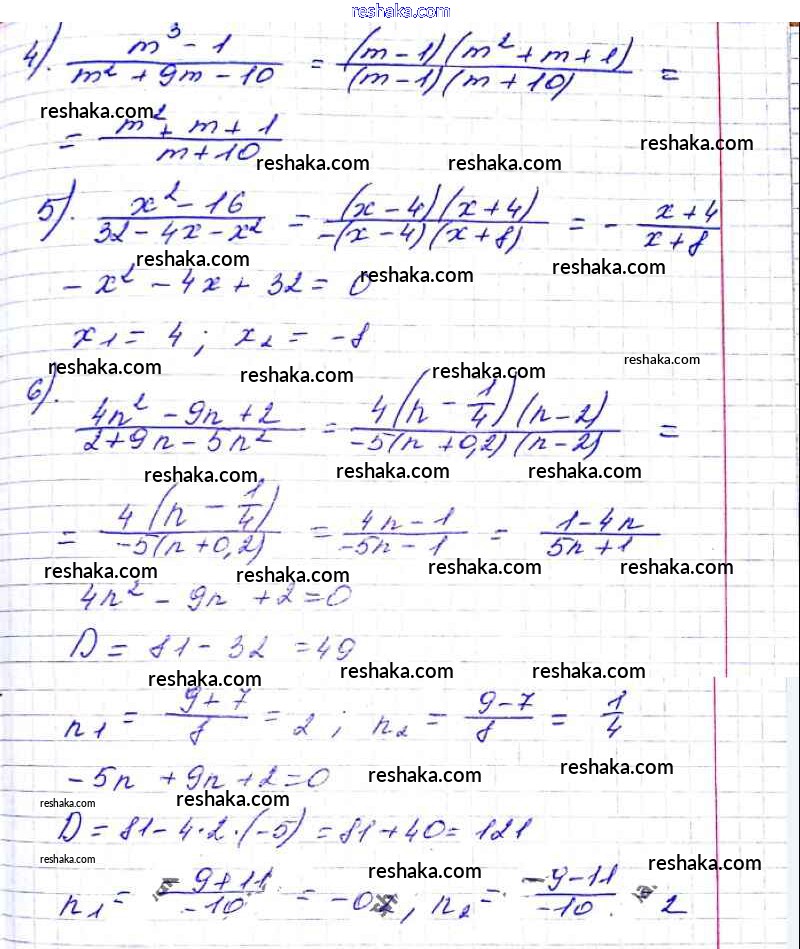 reshaka.com
4). (m³ - 1)/(m² + 9m - 10) = ((m - 1)(m² + m + 1))/((m - 1)(m + 10)) =
reshaka.com
= (m² + m + 1)/(m + 10)
reshaka.com reshaka.com reshaka.com
5). (x² - 16)/(32 - 4x - x²) = ((x - 4)(x + 4))/(-(x - 4)(x + 8)) = - (x + 4)/(x + 8)
reshaka.com reshaka.com reshaka.com
- x² - 4x + 32 = 0
x₁ = 4 ; x₂ = -8
reshaka.com reshaka.com reshaka.com reshaka.com
6). (4n² - 9n + 2)/(2 + 9n - 5n²) = (4(n - 1/4)(n - 2))/(-5(n + 0,2)(n - 2)) =
reshaka.com reshaka.com reshaka.com
= (4(n - 1/4))/(-5(n + 0,2)) = (4n - 1)/(-5n - 1) = (1 - 4n)/(5n + 1)
reshaka.com reshaka.com reshaka.com reshaka.com
4n² - 9n + 2 = 0
D = 81 - 32 = 49
reshaka.com reshaka.com reshaka.com
n₁ = (9 + 7)/8 = 2 ; n₂ = (9 - 7)/8 = 1/4
- 5n + 9n + 2 = 0
reshaka.com reshaka.com
reshaka.com reshaka.com
D = 81 - 4·2·(-5) = 81 + 40 = 121
reshaka.com reshaka.com reshaka.com
n₁ = (-9 + 11)/(-10) = -0, ; n₂ = (-9 - 11)/(-10) 2